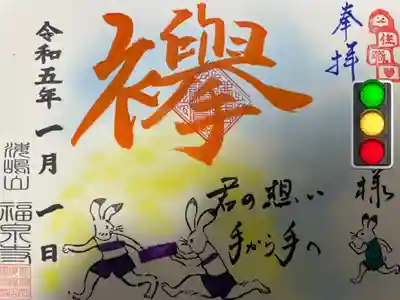 奉拝
様
襷
君の想い
手から手へ
令和五年 一月 一日
福泉寺